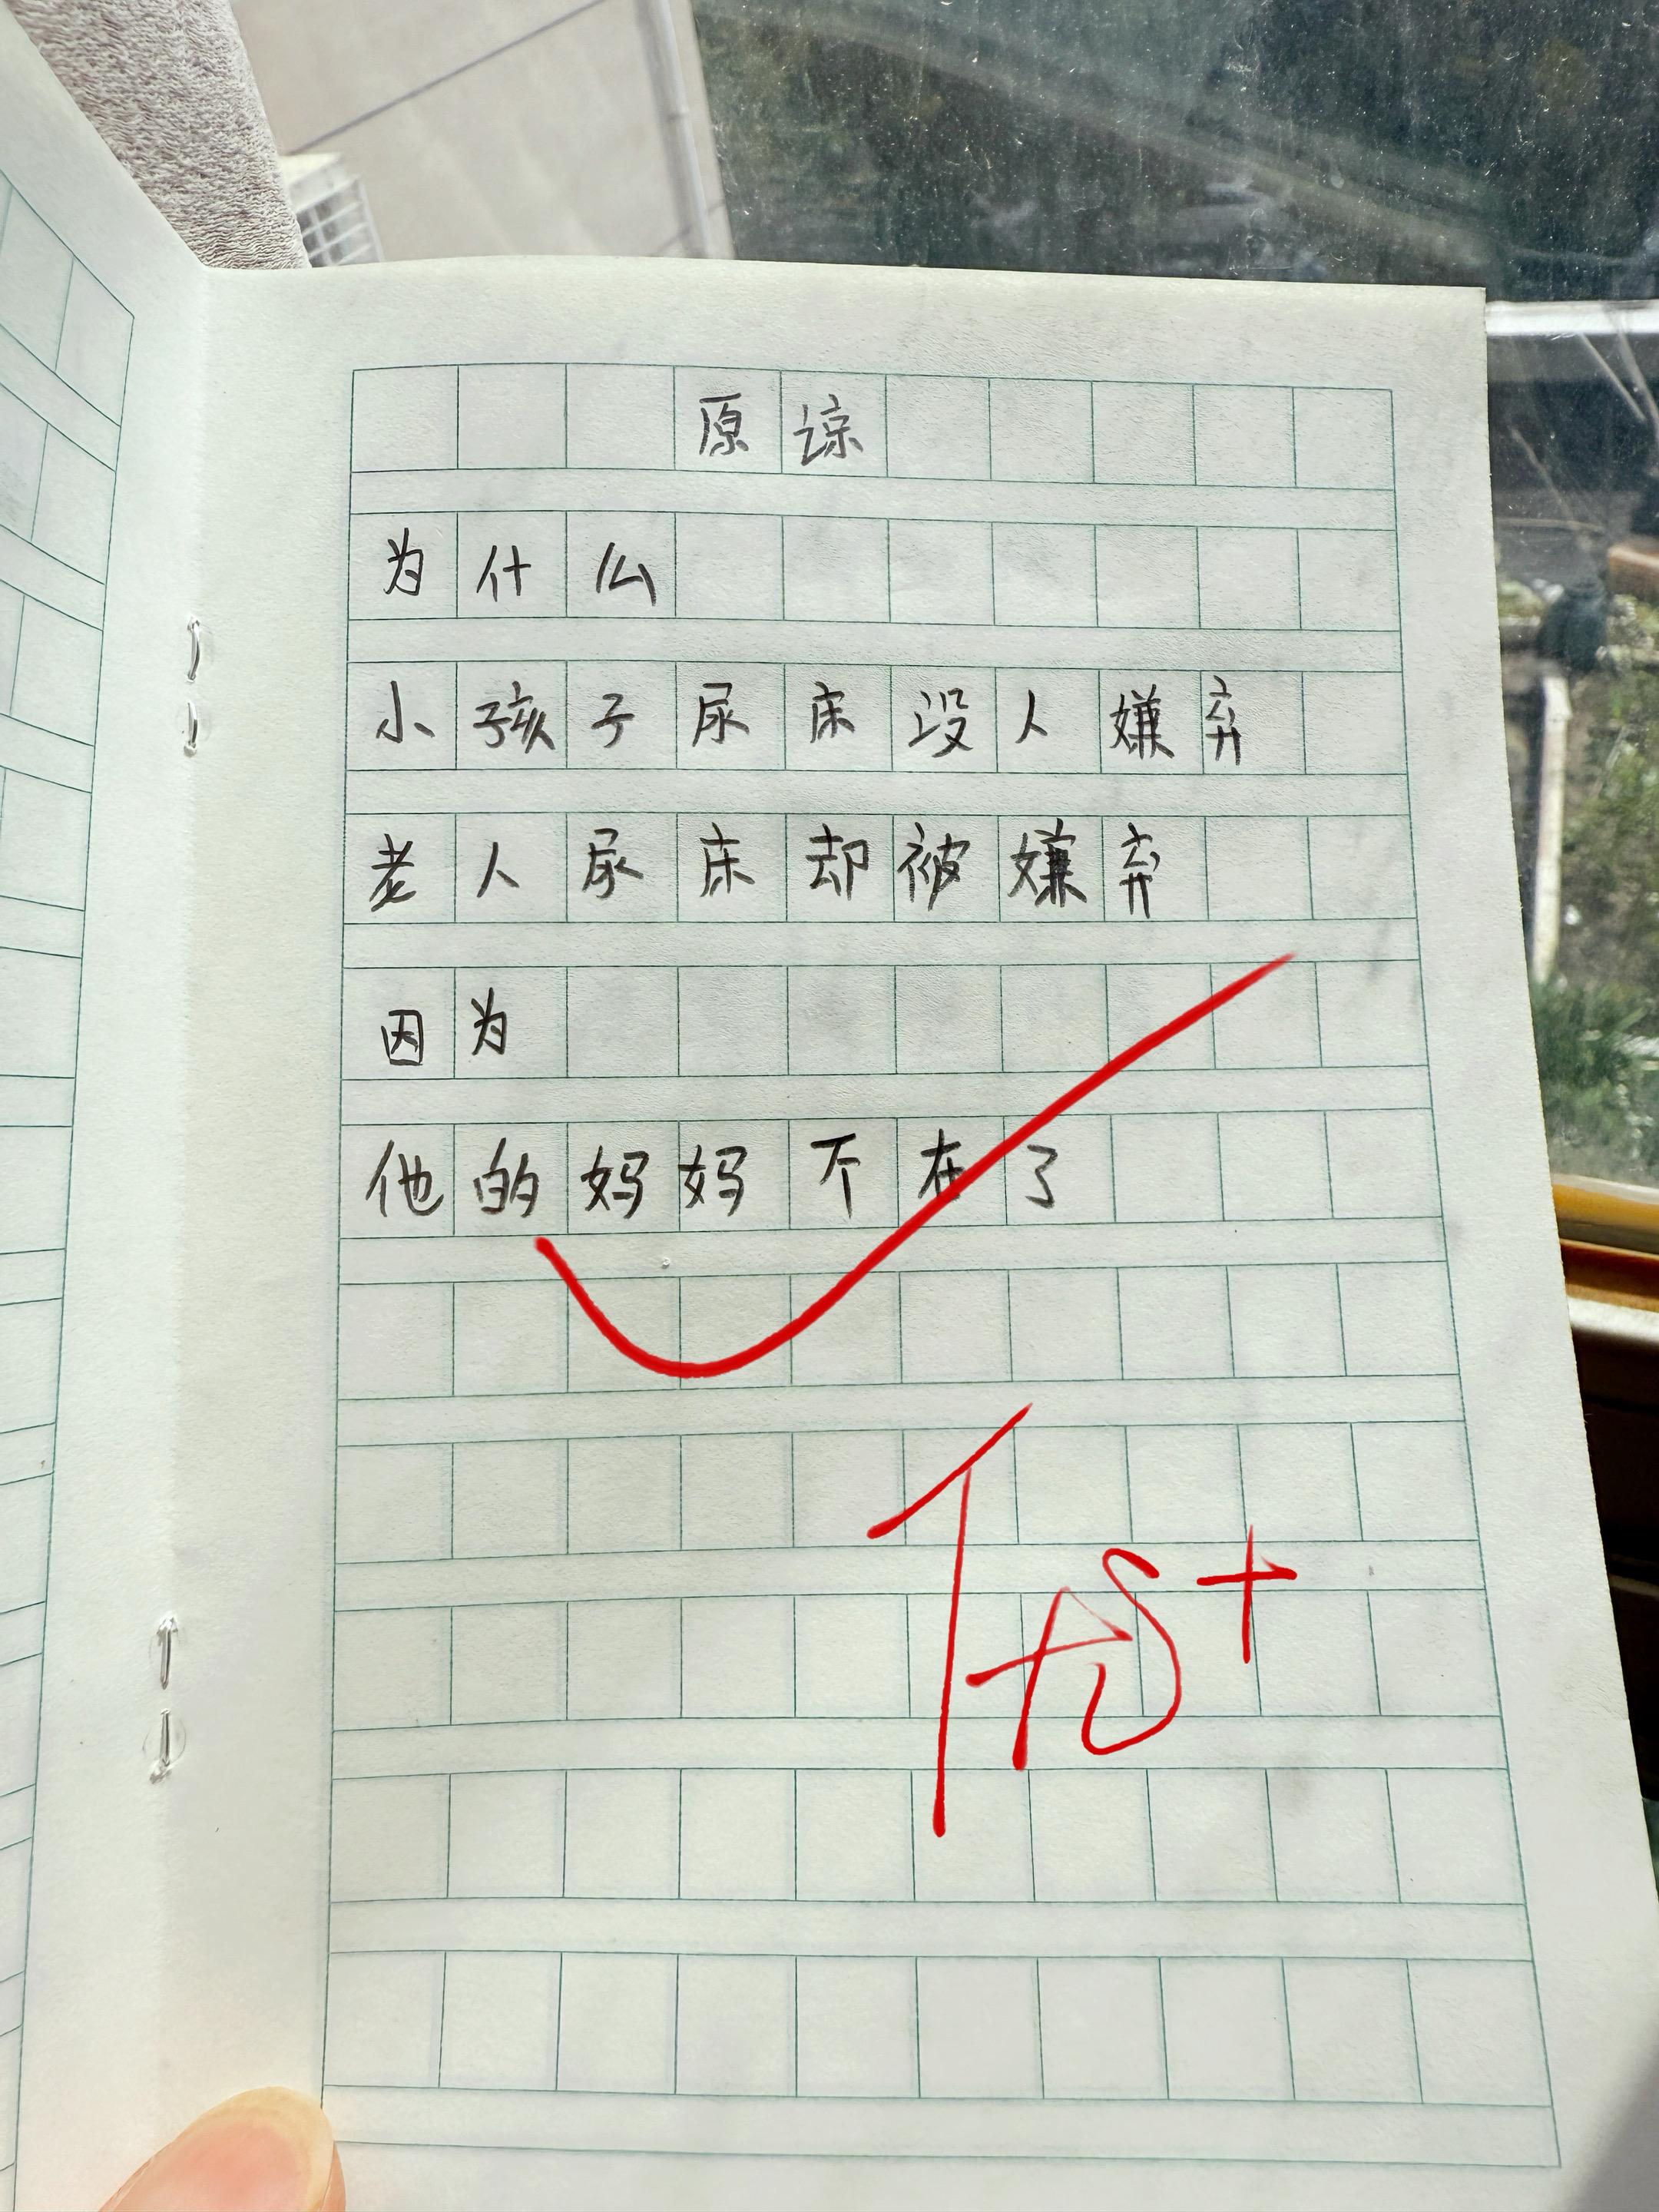 原谅
为什么
小孩子尿床没人嫌弃
老人尿床却被嫌弃
因为
他的妈妈不在了
优+